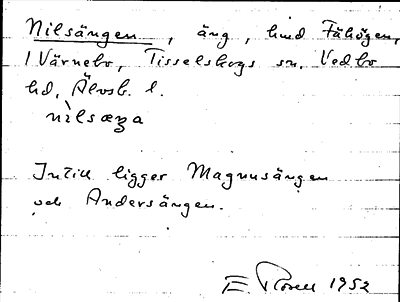 Nilsängen, äng, hmd Fåhögen,
1 Värnebo, Tisselskogs sn. Vedbo
hd, Älvsb. l.
nìlsæŋa
Intill ligger Magnusängen
och Andersängen.
E. 1952